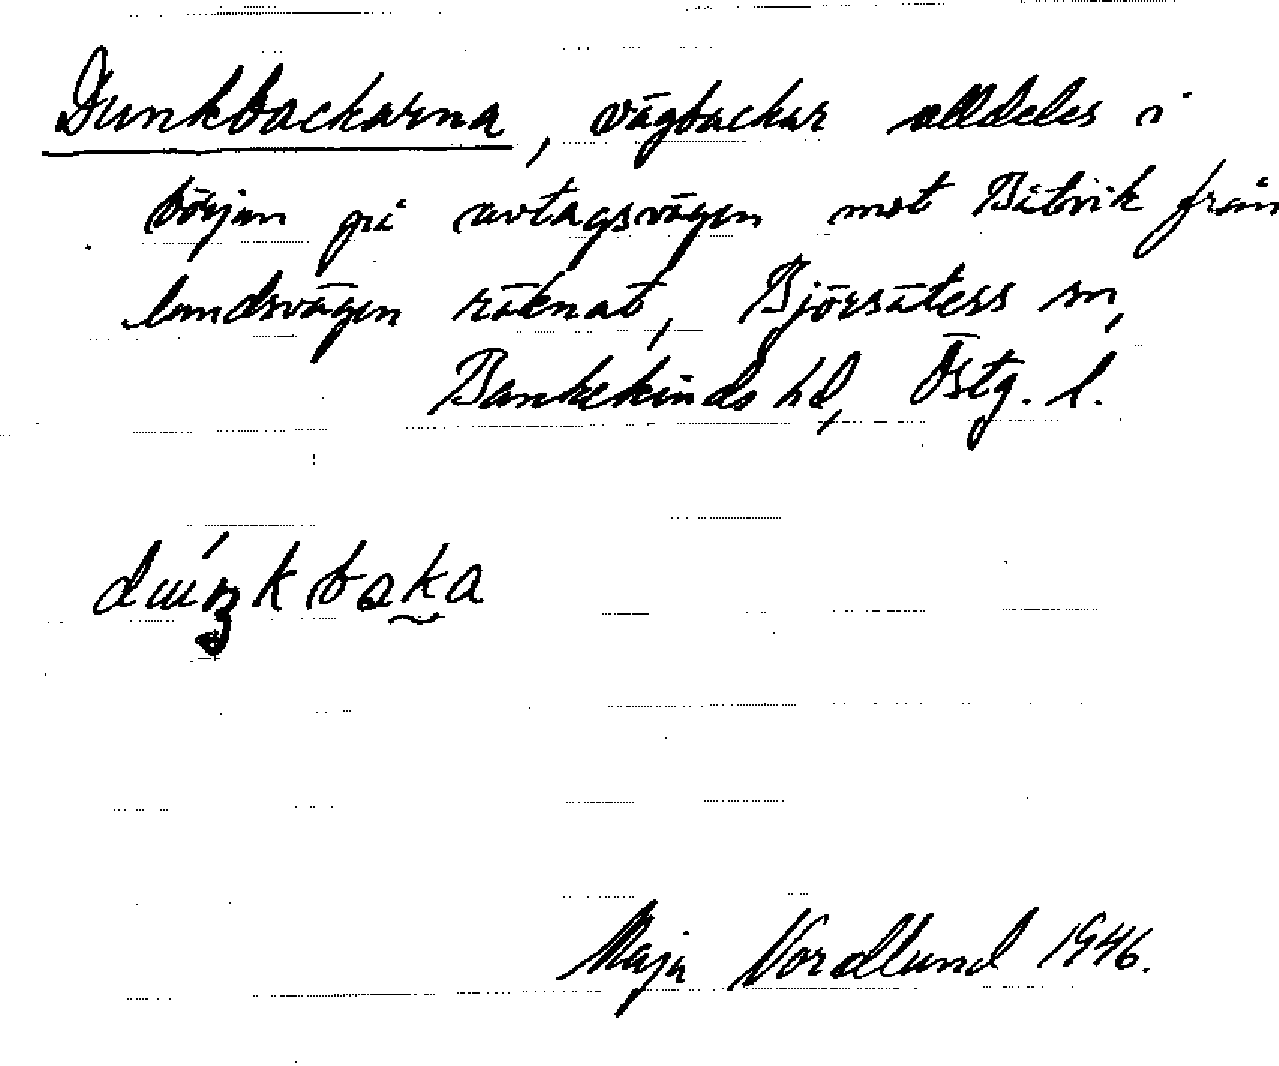 Dunkbackarna, vägbackar alldeles i
början på avtagsvägen mot Båtvik från
landsvägen räknat, Björsäters sn,
Bankekinds hd, Östg. l.
dúŋkbaka
Maja Nordlund 1946.